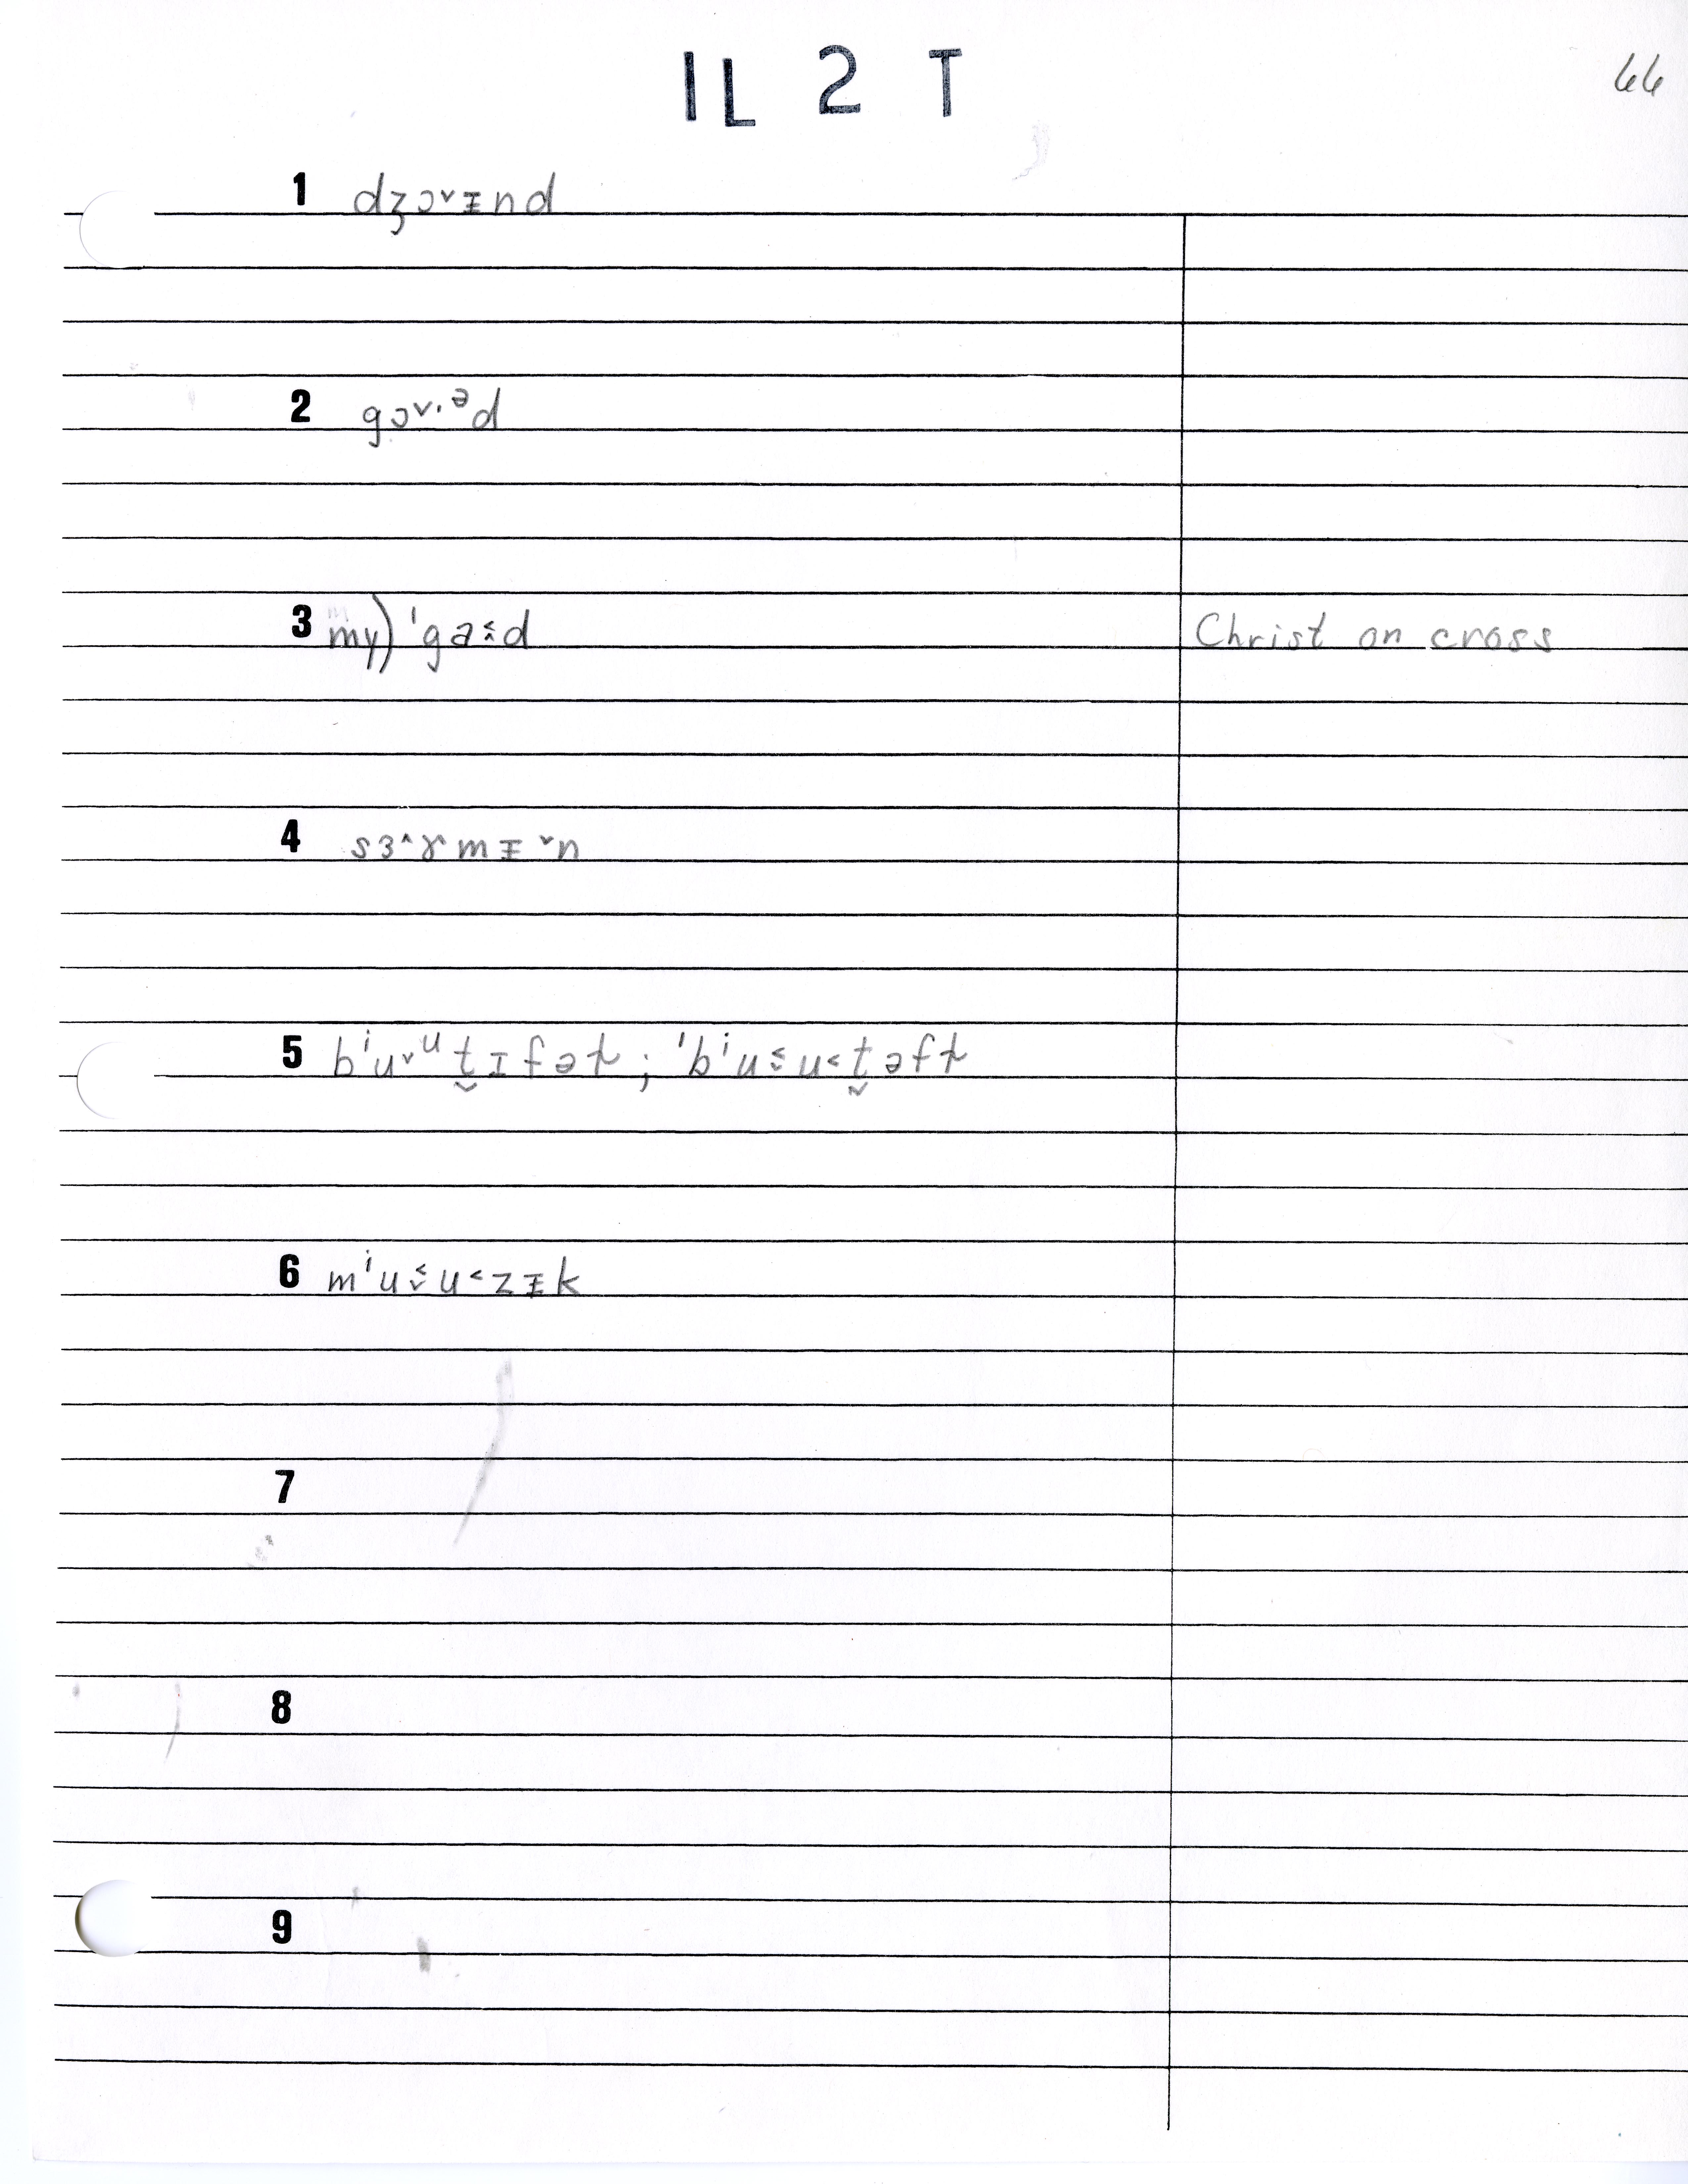 IL 2 T
66
1 dʒɔ˅ᵻnd
2 gɔ˅ᶦᵊd
3 my) ˈga˱̬d Christ on cross
4 sɜ˄ɤmᵻ˅n
5 bⁱu˅ᵘt̬ɪfəɫ ; ˈbⁱu˂̬u˂t̬əfɫ
6 mⁱu˂̬u˂zᵻk
7
8
9